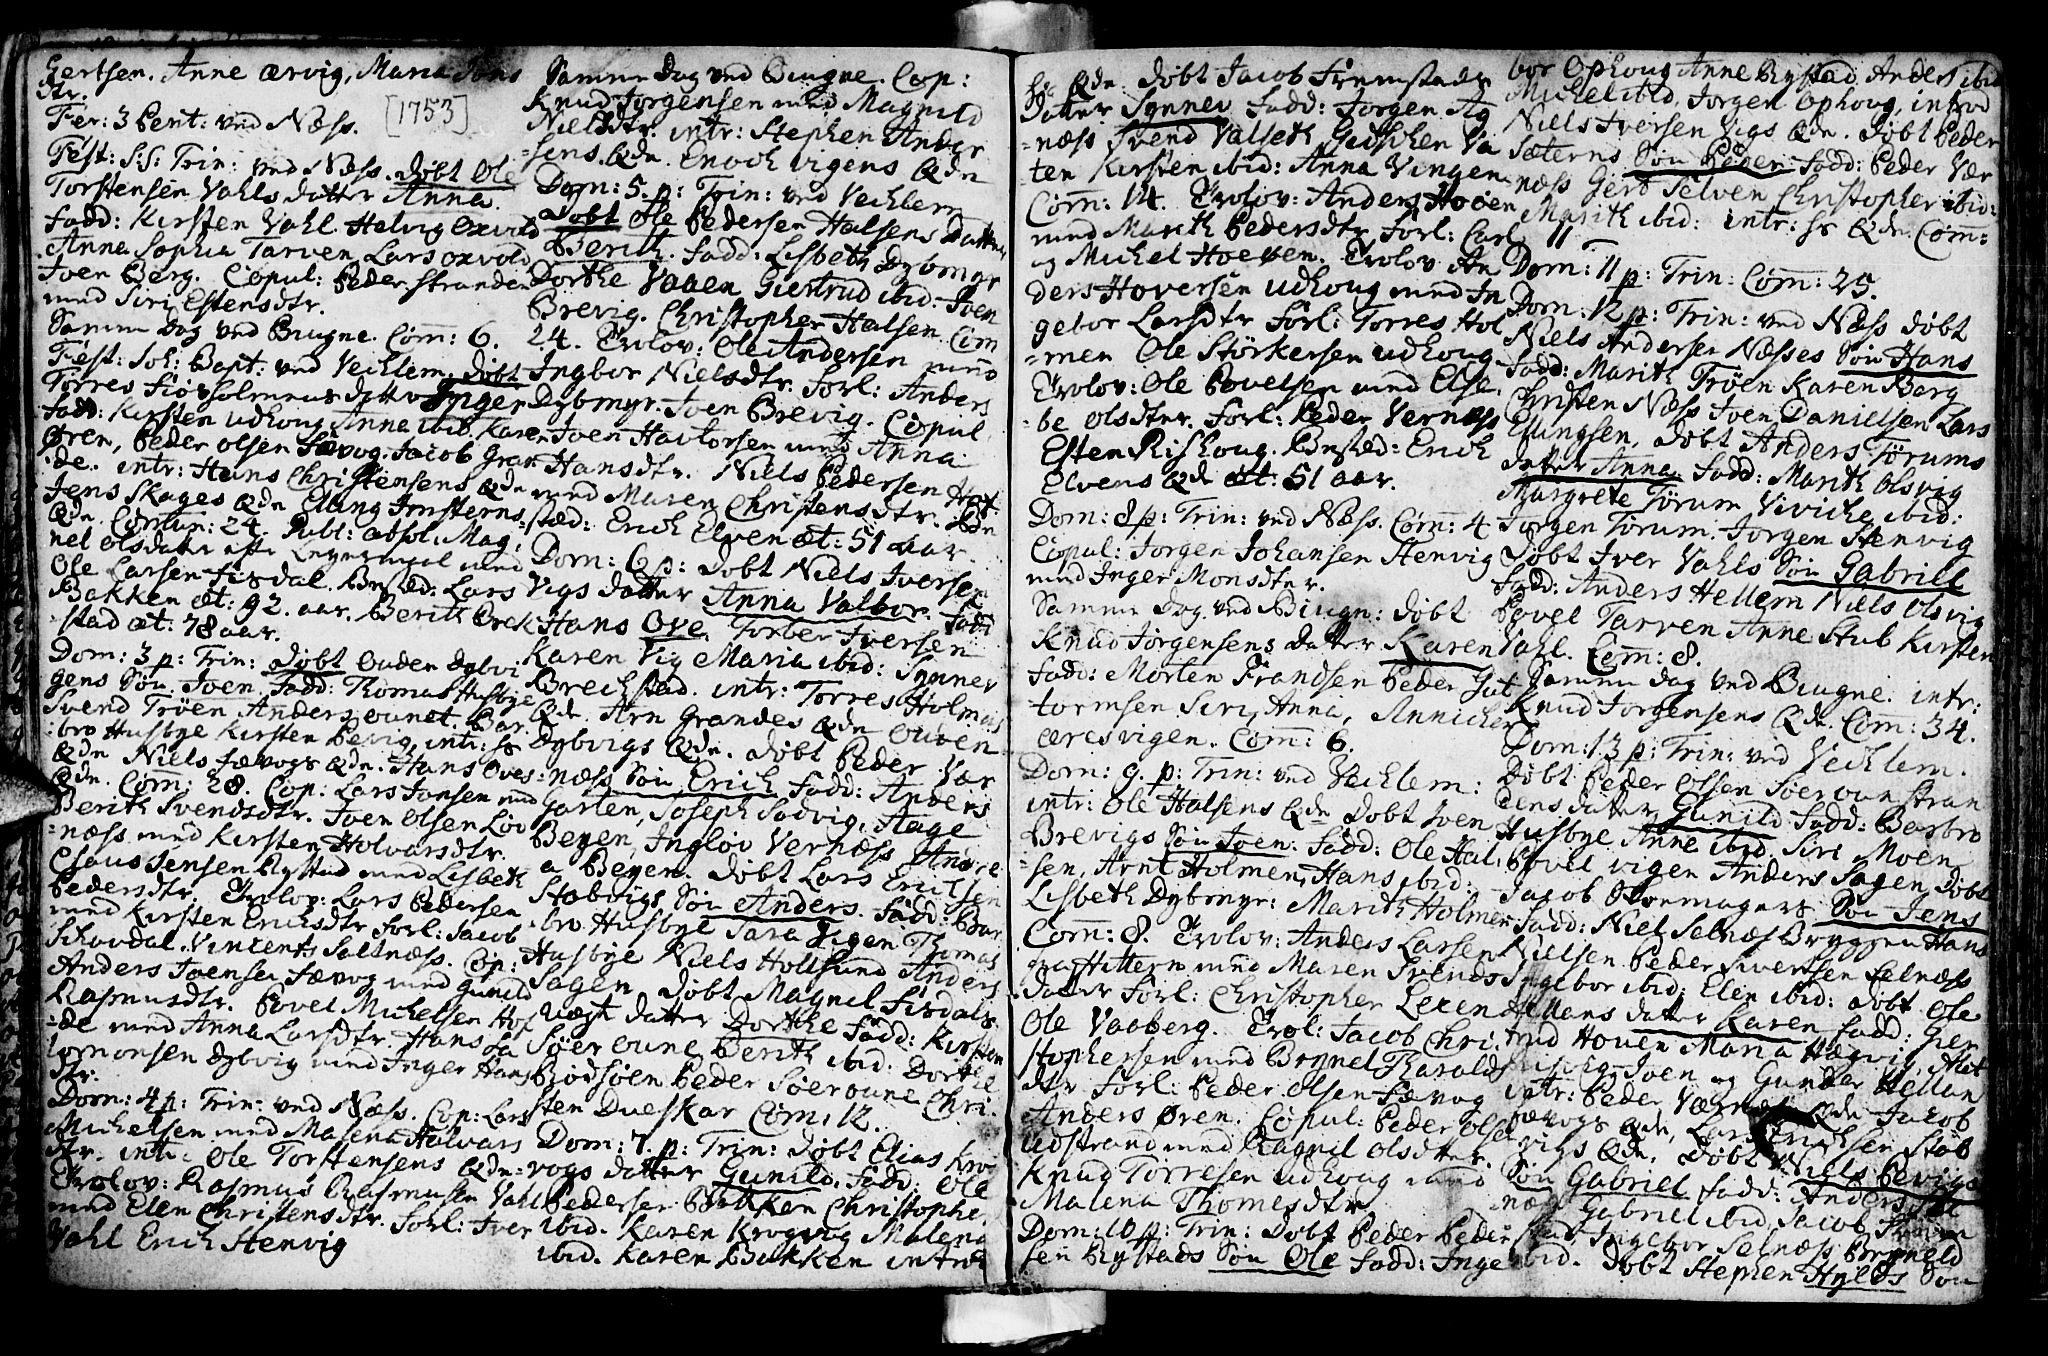 Gertsen. Anne Ervig, Maria Jons
dtr.
Fer: 3 Pent: ved Næss. [1753]
Fest: S:S: Trin: ved Næss. døbt Ole
Torstensen Vahls datter Anna.
Fadd: Kirsten Vahl Helvig Oxvold
Anna Sophia Tarven Lars Oxvold
Iven Berg. Copul: Peder Stranden
med Siri Estensdtr.
Samme Dag ved Biugne. Com: 6.
Fest: Joh: Bapt: ved Vechlem. døbt
Torres datter Inger
Fadd: Kirsten Udhoug Anne ibid. Karen
Øren, Peder Olsen Fævog. Jacob Gran
de. intr: Hans Christensens Qde
Jens Skages Qde Elling Qde
Comun: 24. Publ: absol. Mag
nel Olsdatter med
Ole Larsen Fisdal. Bested: Lars
Bakken æt: 92. aar. Berith
stad æt: 78 aar.
Dom: 3 p: Trin: døbt Ouden Dybvi
gens Søn Joen. Fadd: Thomas Husbye
Svend Trøen Anders ounet. Bar
bro Husbye Kirsten Bevig. intr: ss
Qde Niels Fævogs Qde. Hans Oves
Qde. Com: 28. Cop: Lars Jonsen med
Berith Svendsdtr. Iven Olsen Løv
næss med Kirsten Holvarsdtr.
Claus Jensen Rystad med Lisbeth
Pedersdtr. Trolov: Lars Pedersen
med Kirsten Erichsdtr Forl: Jacob
Schovdal. Vincents Seltnæss. Cop:
Anders Ivensen Fævog med Gunild
Rasmusdtr. Povel Michelsen Hof
de med Anna Larsdtr. Hans Sa
lomonsen Dybvig med Inger Hans
dtr.
Dom: 4 p: Trin: ved Næss. Cop: Lars
Michelsen med Malena Halvars
dtr. intr: Ole Torstensens Qde
Trolov: Rasmus Rasmusen Vahl
med Elen Christensdtr. Forl: Iver
Vahl Erich Stenvig
Samme Dag ved Biugne. Cop:
Knud Jørgensen med Magnild
Nielsdtr. intr: Stephen Ander
sens Qde. Enoch Vigens Qde
Dom: 5. p: Trin: ved Vechlem
Døbt Ole Pedersen Halsens Datter
Berith. Fadd: Lisbeth Dybmyr
Dorthe Vaaen Giertrud ibid. Iven
Brevig. Christopher Halsen Com
24. Trolov: Ole Andersen med
Ingbor Nielsdtr. Forl: Anders
Dybmyr. Iven Brevig. Copul
Iven Havtorsen med Anna
Hansdtr. Niels Pedersen
med Maren Christensdtr.
sted: Erich Elven æt: 51 aar
Dom: 6 p: døbt Niels Iversen
Vigs datter Anna Valbor. Fadd
Hans Ove. Torber Iversen
Karen Vig Maria ibid: Synnev
Brechstad. intr: Torres Holmens
Qde. Arn Grandes Qde Ouden
Dybvigs Qde. døbt Peder Vær
næss Søn Erich Fadd: Anders
Garten, Joseph Sadvig, Aage
Beyen, Inglov Vernæss Andre
a Beyen. døbt Lars Erichsen
Støbvigs Søn Anders. Fadd: Bar
bro Husbye Sara Vigen Thomas
Husbye Niels Hollsund Anders
Sagen. døbt Magnel Fisdals
datter Dorthe Fadd: Kirsten
Søeroune Berith ibid. Dorthe
Brødsøen Peder Søeroune Chri
sten Dueskar Com: 12.
Dom: 7 p: Trin: døbt Elias Kro
vogs datter Gunild. Fadd: Ole
Pedersen Bakken Christophe
ibid. Karen Krogvog Malena
ibid. Karen Bakken intr:
ss Qde. døbt Jacob Fremstads
Datter Synnev Fadd: Jorgen Ag
næss Svend Valseth Gidschen Va
ten Kirsten ibid: Anna Vingen
Com: 14. Trolov: Anders Hoven
med Marith Pedersdtr. Forl: Carl
og Michel Hoeven. Trolov An
ders Hoversen Udhoug med In
gebor Larsdtr Forl: Torres Hol
men Ole Størkersen Udhoug
Trolov: Ole Povelsen med Else
be Olsdtr. Forl: Peder Vernæss
Esten Rishoug. Bested: Erich
Elvens Qde æt: 51 aar.
Dom: 8 p: Trin: ved Næss. Com: 4
Copul: Jorgen Johansen Stenvig
med Inger Monsdtr.
Samme Dag ved Biugn: døbt
Knud Jørgensens Datter Karen
Fadd: Morten Frandsen Peder Gut
tormsen Siri, Anna, Annicken
æresvigen. Com: 6.
Dom: 9. p: Trin: ved Vechlem:
intr: Ole Halsens Qde døbt Iven
Brevigs Søn Joen. Fadd: Ole Hal
sen, Arnt Holmen, Hans ibid:
Lisbeth Dybmyr: Marith Holmen
Com: 8. Trolov: Anders Larsen
fra Hittern med Maren Svends
datter Forl: Christopher Leren
Ole Vaaberg. Trol: Jacob Chri
stophersen med Brynel Tharalds
dtr Forl: Peder Olsen Fævog
Anders Øren. Copul: Peder Olsen
Udstrand med Ragnel Olsdtr.
Knud Torresen Udhoug med
Malena Thomesdtr.
Dom: 10 p: Trin: Døbt Peder Peder
sen Rystads Søn Ole Fadd: Inge
bor Ophoug Anne Rystad Anders ibid
Michel ibid. Jorgen Ophoug, introd
Niels Iversen Vigs Qde. døbt Peder
Sæterns Søn Peder. Fadd: Peder Vær
næss Gert Selven Christopher ibid:
Marith ibid: intr: ss Qde. Com:
11
Dom: 11 p: Trin: Com: 25.
Dom: 12 p: Trin: ved Næss døbt
Niels Andersen Næsses Søn Hans
Fadd: Marith Trøen Karen Berg
Christen Næss Iven Danielsen Lars
Ellingsen. døbt Anders Tørums
datter Anna Fadd: Marith Olsvig
Margrete Tørum Viviche ibid:
Jorgen Torum. Jorgen Stenvig
Døbt Iver Vahls Søn Gabriel
Fadd: Anders Hellem Niels Olsvig
Povel Tarven Anne Stub Kirsten
Vahl. Com: 8.
Samme dag ved Biugne intr:
Knud Jorgensens Qde. Com: 34.
Dom: 13 p: Trin: ved Vechlem.
Døbt Peder Olsen Søeroun stran
dens datter Gunild Fadd: Barbro
Husbye Anne ibid Siri Moen
Povel Vigen Anders Sagen, døbt
Jacob Skoemagers Søn Jens
Fadd: Niels Selnæs Bryggen Hans
Nielsen Peder Siversen Selnæss
Ingebor ibid: Elen ibid: døbt Ole
Hellans datter Karen Fadd: Gier
trud Hoven Maria Hægvig, Mat
Iven og Gunder Hellan
intr: Peder Værnæs Qde Jacob
Fævogs Qde, Lars Erichsen Støb
vigs Qde. Døbt Niels Bevigs
Søn Gabriel Fadd: Anders Sel
næs Gabriel ibid, Jacob
stad Ingebor Selnæss Bryneld
ibid. Døbt Stephen Hylds Søn